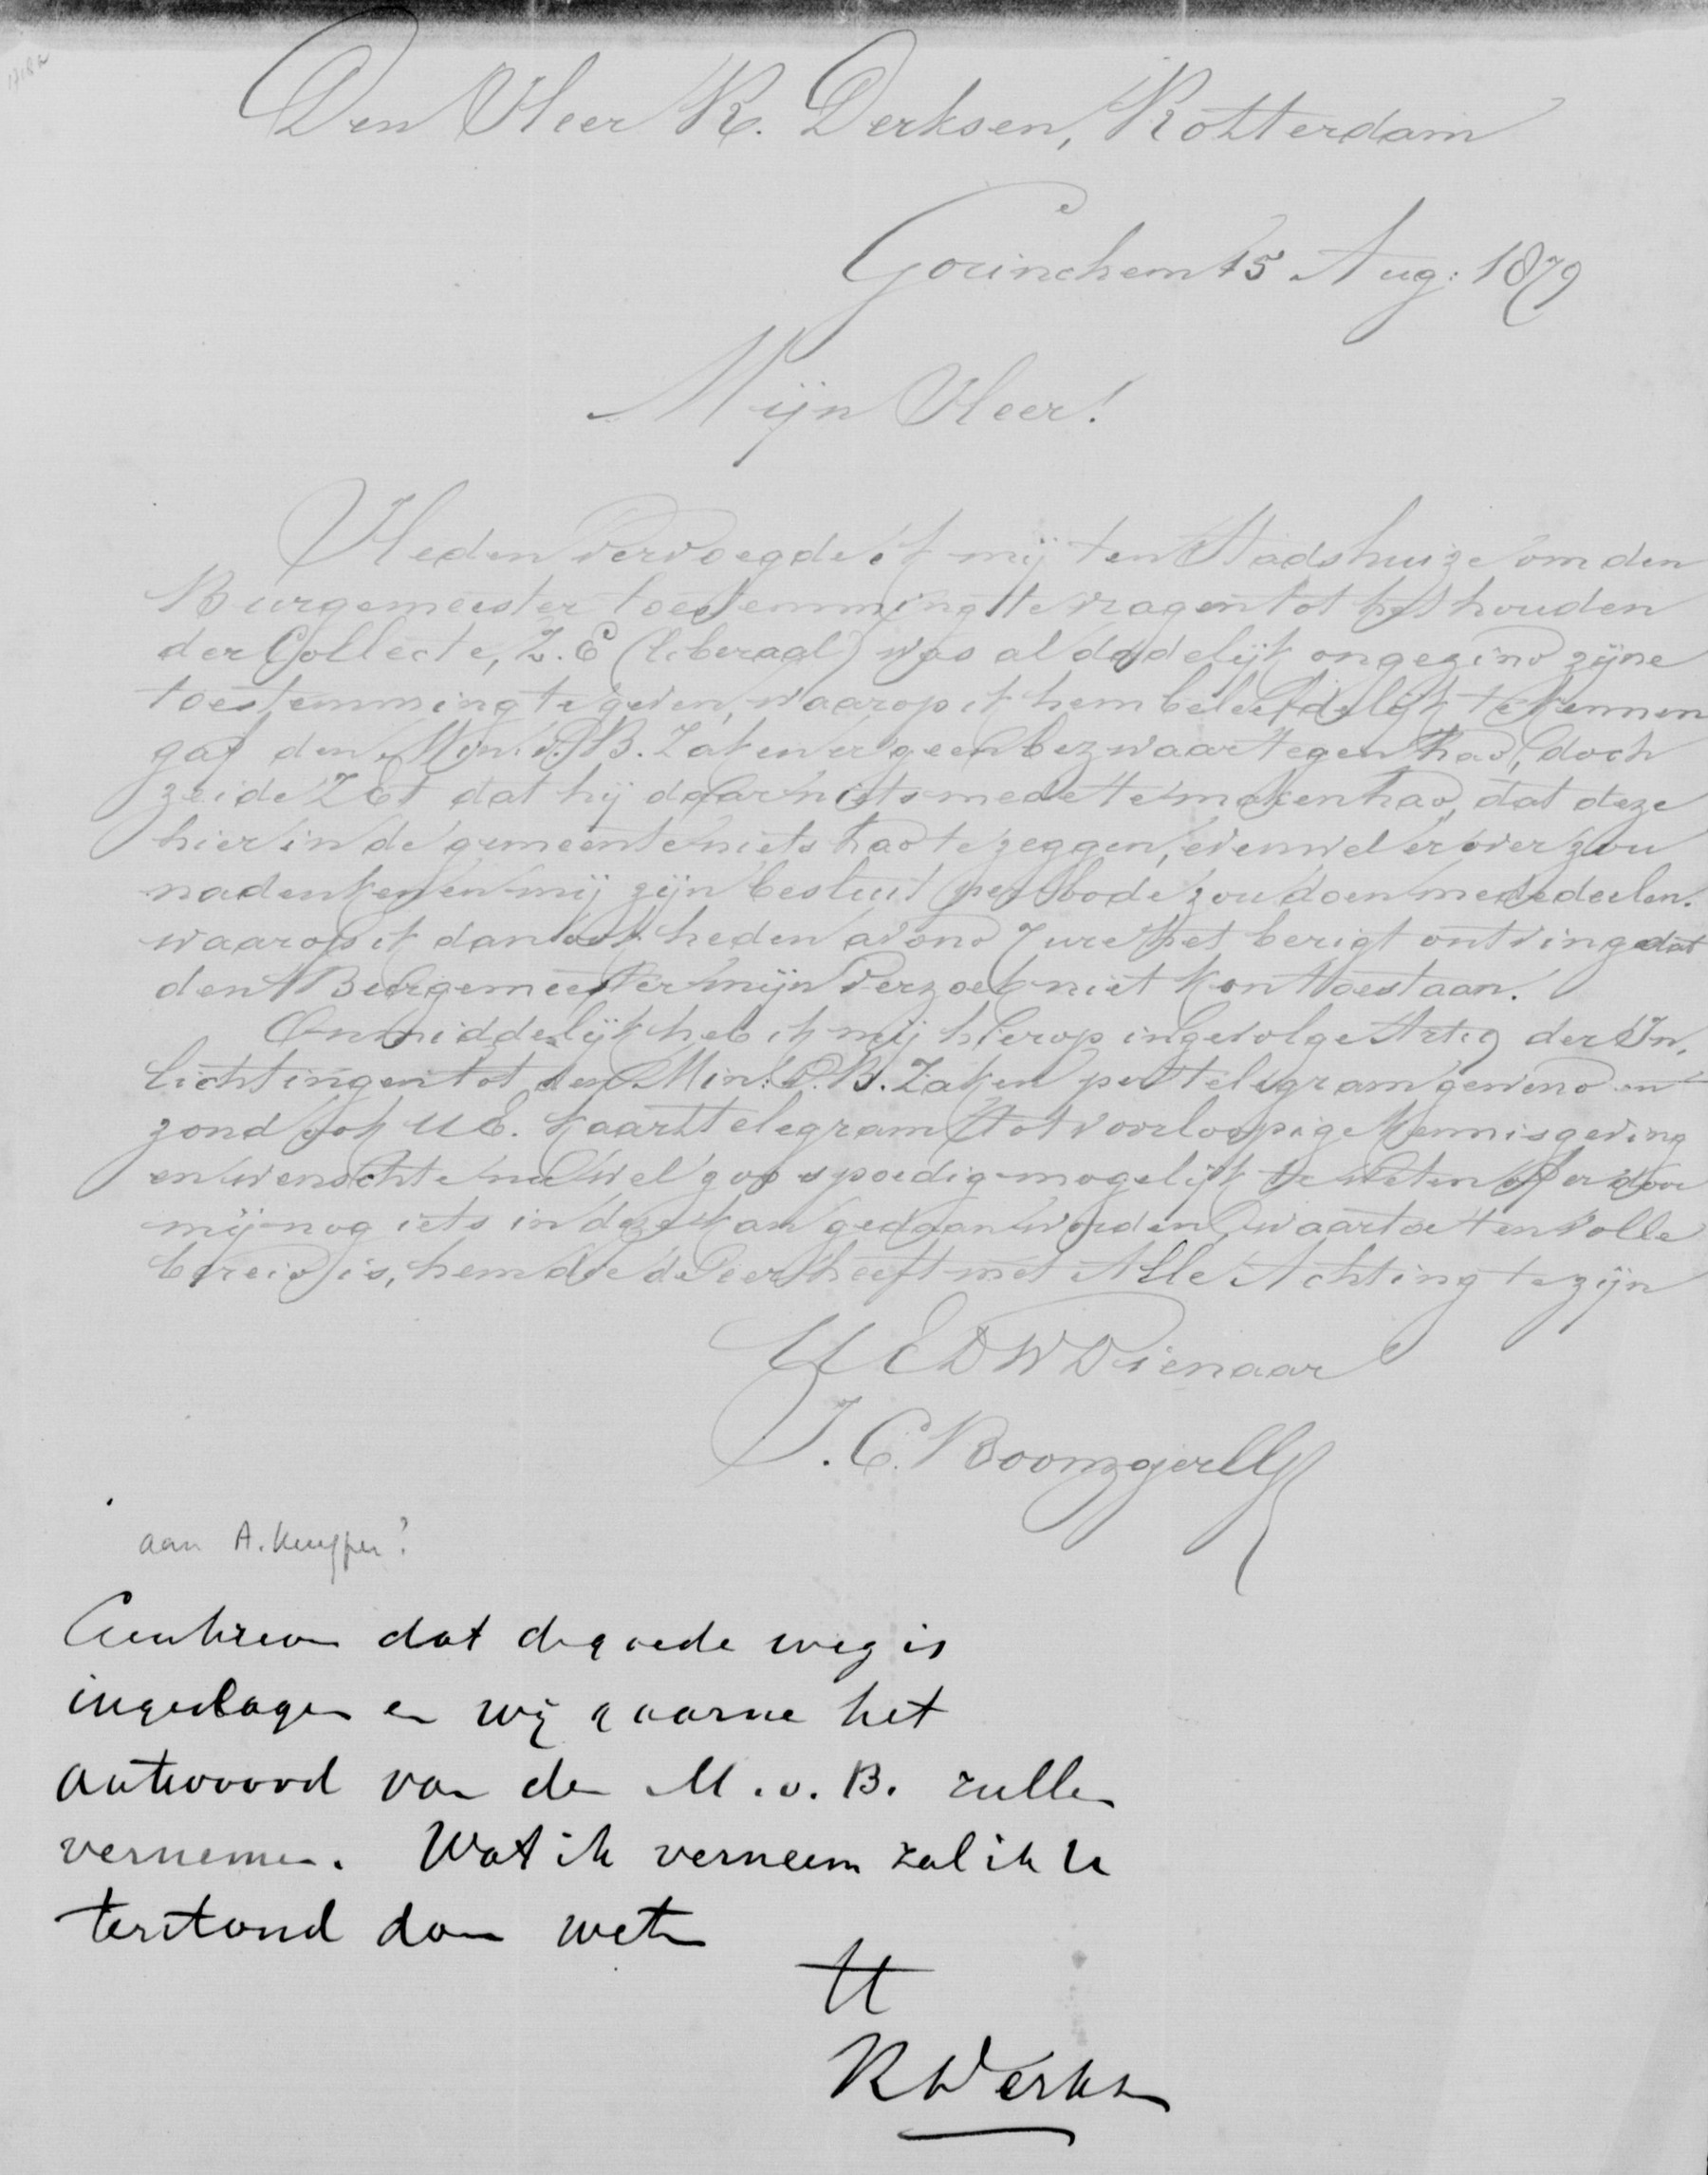 Den Heer R. Derksen, Rotterdam
Gorinchem 15 Aug: 1879
Mijn Heer!
Heden vervoegde ik mij ten Stadshuize om den
Burgemeester toestemming te vragen tot het houden
der Collecte, Z.E (liberaal) was al dadelijk ongezind zijne
toestemming te geven, waarop ik hem beleefdelijk te kennen
gaf den Min. v. B. Zaken er geen bezwaar tegen had, doch
zeide ZEd dat hij daar niets mede te maken had, dat deze
hier in de gemeente niets had te zeggen, evenwel er over zou
nadenken en mij zijn besluit per bode zou doen mededeelen.
waarop ik dan ook heden avond 7 ure het berigt ontving dat
den Burgemeester mijn verzoek niet kon toestaan.
Onmiddelijk heb ik mij hierop ingevolge Art. 9 der In,
lichtingen tot den Min: v. B. Zaken per telegram gewend en
zond ook UE. kaarttelegram tot voorloopige kennisgeving
en wenschte nu wel zoo spoedig mogelijk te weten of er door
mij nog iets in deze kan gedaan worden, waartoe ten volle
bereid is, hem die de eer heeft met Alle Achting te zijn
UEDWDienaar
J. C.
aan A. Kuyper?
dat de goede weg is
ingeslagen en wij gaarne het
antwoord van den M. v. B. zullen
vernemen. Wat ik verneem zal ik U
terstond doen weten
tt
RDerksen